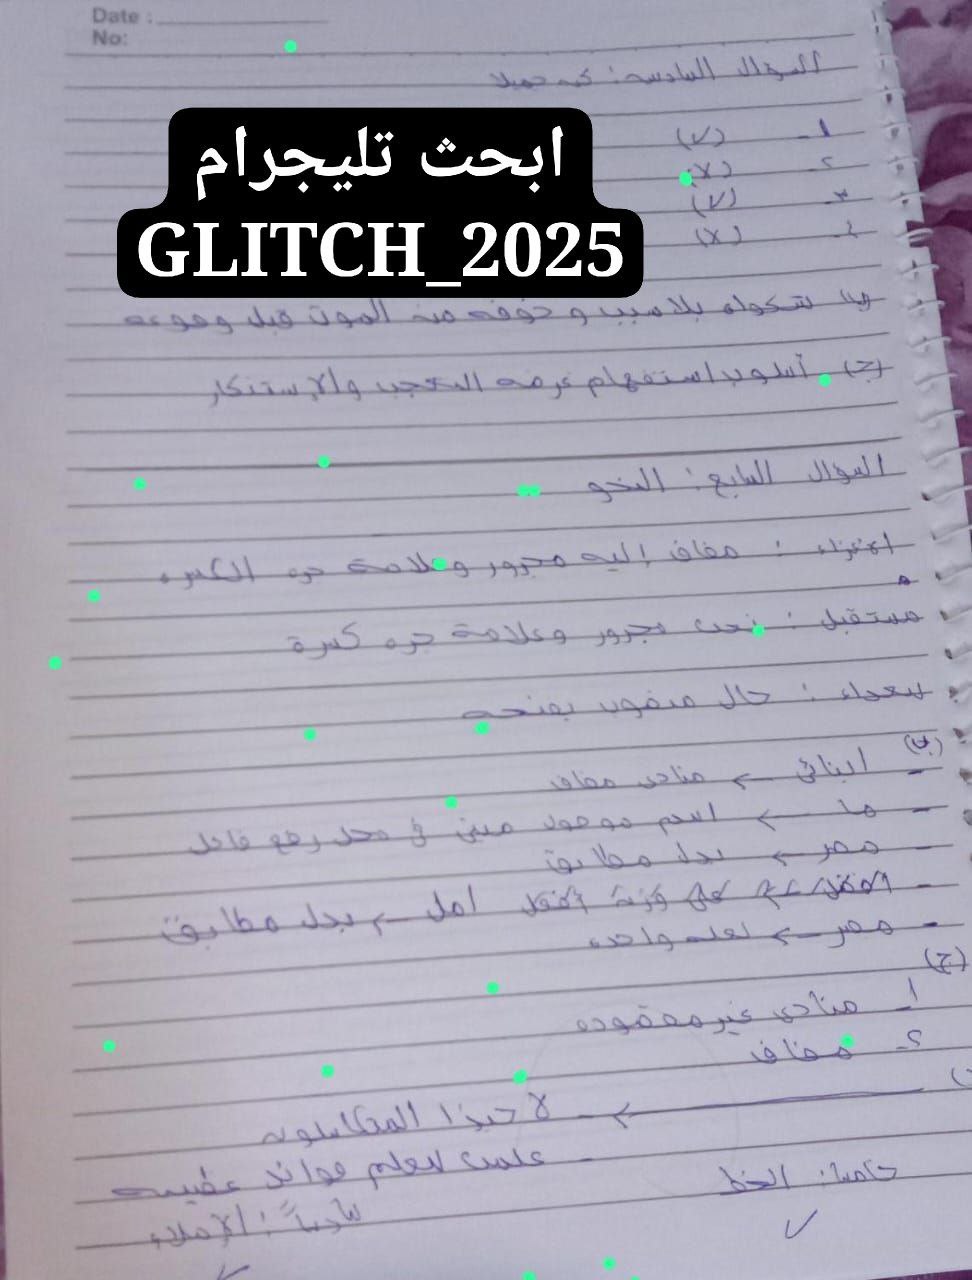 Date :
No:
السؤال السادس: كن جميلا
ابحث تليجرام
GLITCH_2025
١- (√)
٢- (X)
٣- (√)
٤- (X)
(ب) شكواه بلا سبب وخوفه من الموت قبل وقوعه
(ج) أسلوب استفهام غرضه التعجب والإستنكار
السؤال السابع: النحو
الأعزاء : مضاف إليه مجرور وعلامة جره الكسره
مستقبل : نعت مجرور وعلامة جره كسرة
سعداء : حال منصوب بفتحه
(ب)
- ابنائى ← منادى مضاف
- ما ← اسم موصول مبنى فى محل رفع فاعل
- مصر ← بدل مطابق
- على وزن أفعل امل ← بدل مطابق
- مصر ← لعله واحده
(ج)
١- منادى غير مقصوده
٢- مضاف
← - لا حبذا المتكاسلون
- علمت للعلم فوائد عظيمه
خامسا: الخط
سادساً: الإملاء
✓
✓